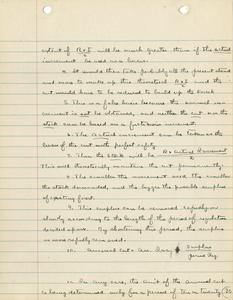 extent of R&I will be much greater than if the actual
increment be used as a basis.
2. It would then take probably all the present stand
and more to make up this theoretical R&I and the
cut would have to be reduced to build up the stock.
3. This is a false basis because the normal in-
crement is not be obtained, and neither the cut nor the
stock can be based on a fictitious increment.
6. The Actual increment can be taken as the
basis of the cut with perfect safety.
7. Then the stock will be R x Actual Increment
This will theoretically maintain the cut permanently.
8. The smaller the increment used, the smaller
the stock demanded, and the larger the possible surplus
of existing forest.
9. This surplus can be removed rapidly or
slowly according to the length of the period of regulation
decided upon. By shortening this period, the surplus
is more rapidly removed.
10. Annual cut = Ave. Incr. + Surplus
period Reg.
11. In any case, the unit of the annual cut
is being determined only for a period of ten or twenty